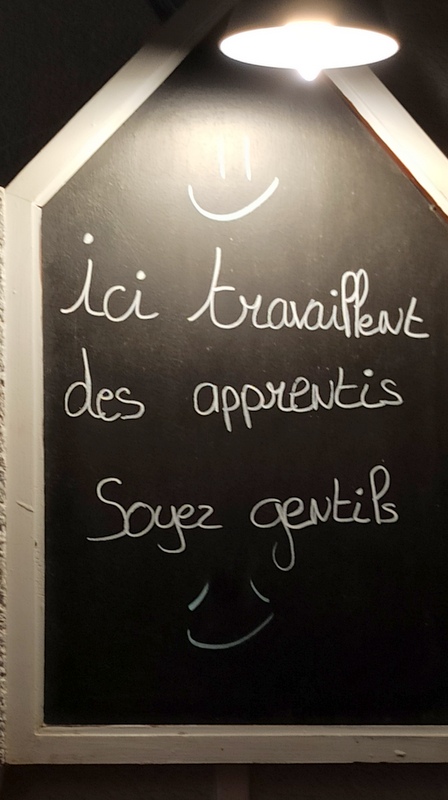 ici travaillent
des apprentis
Soyez gentils